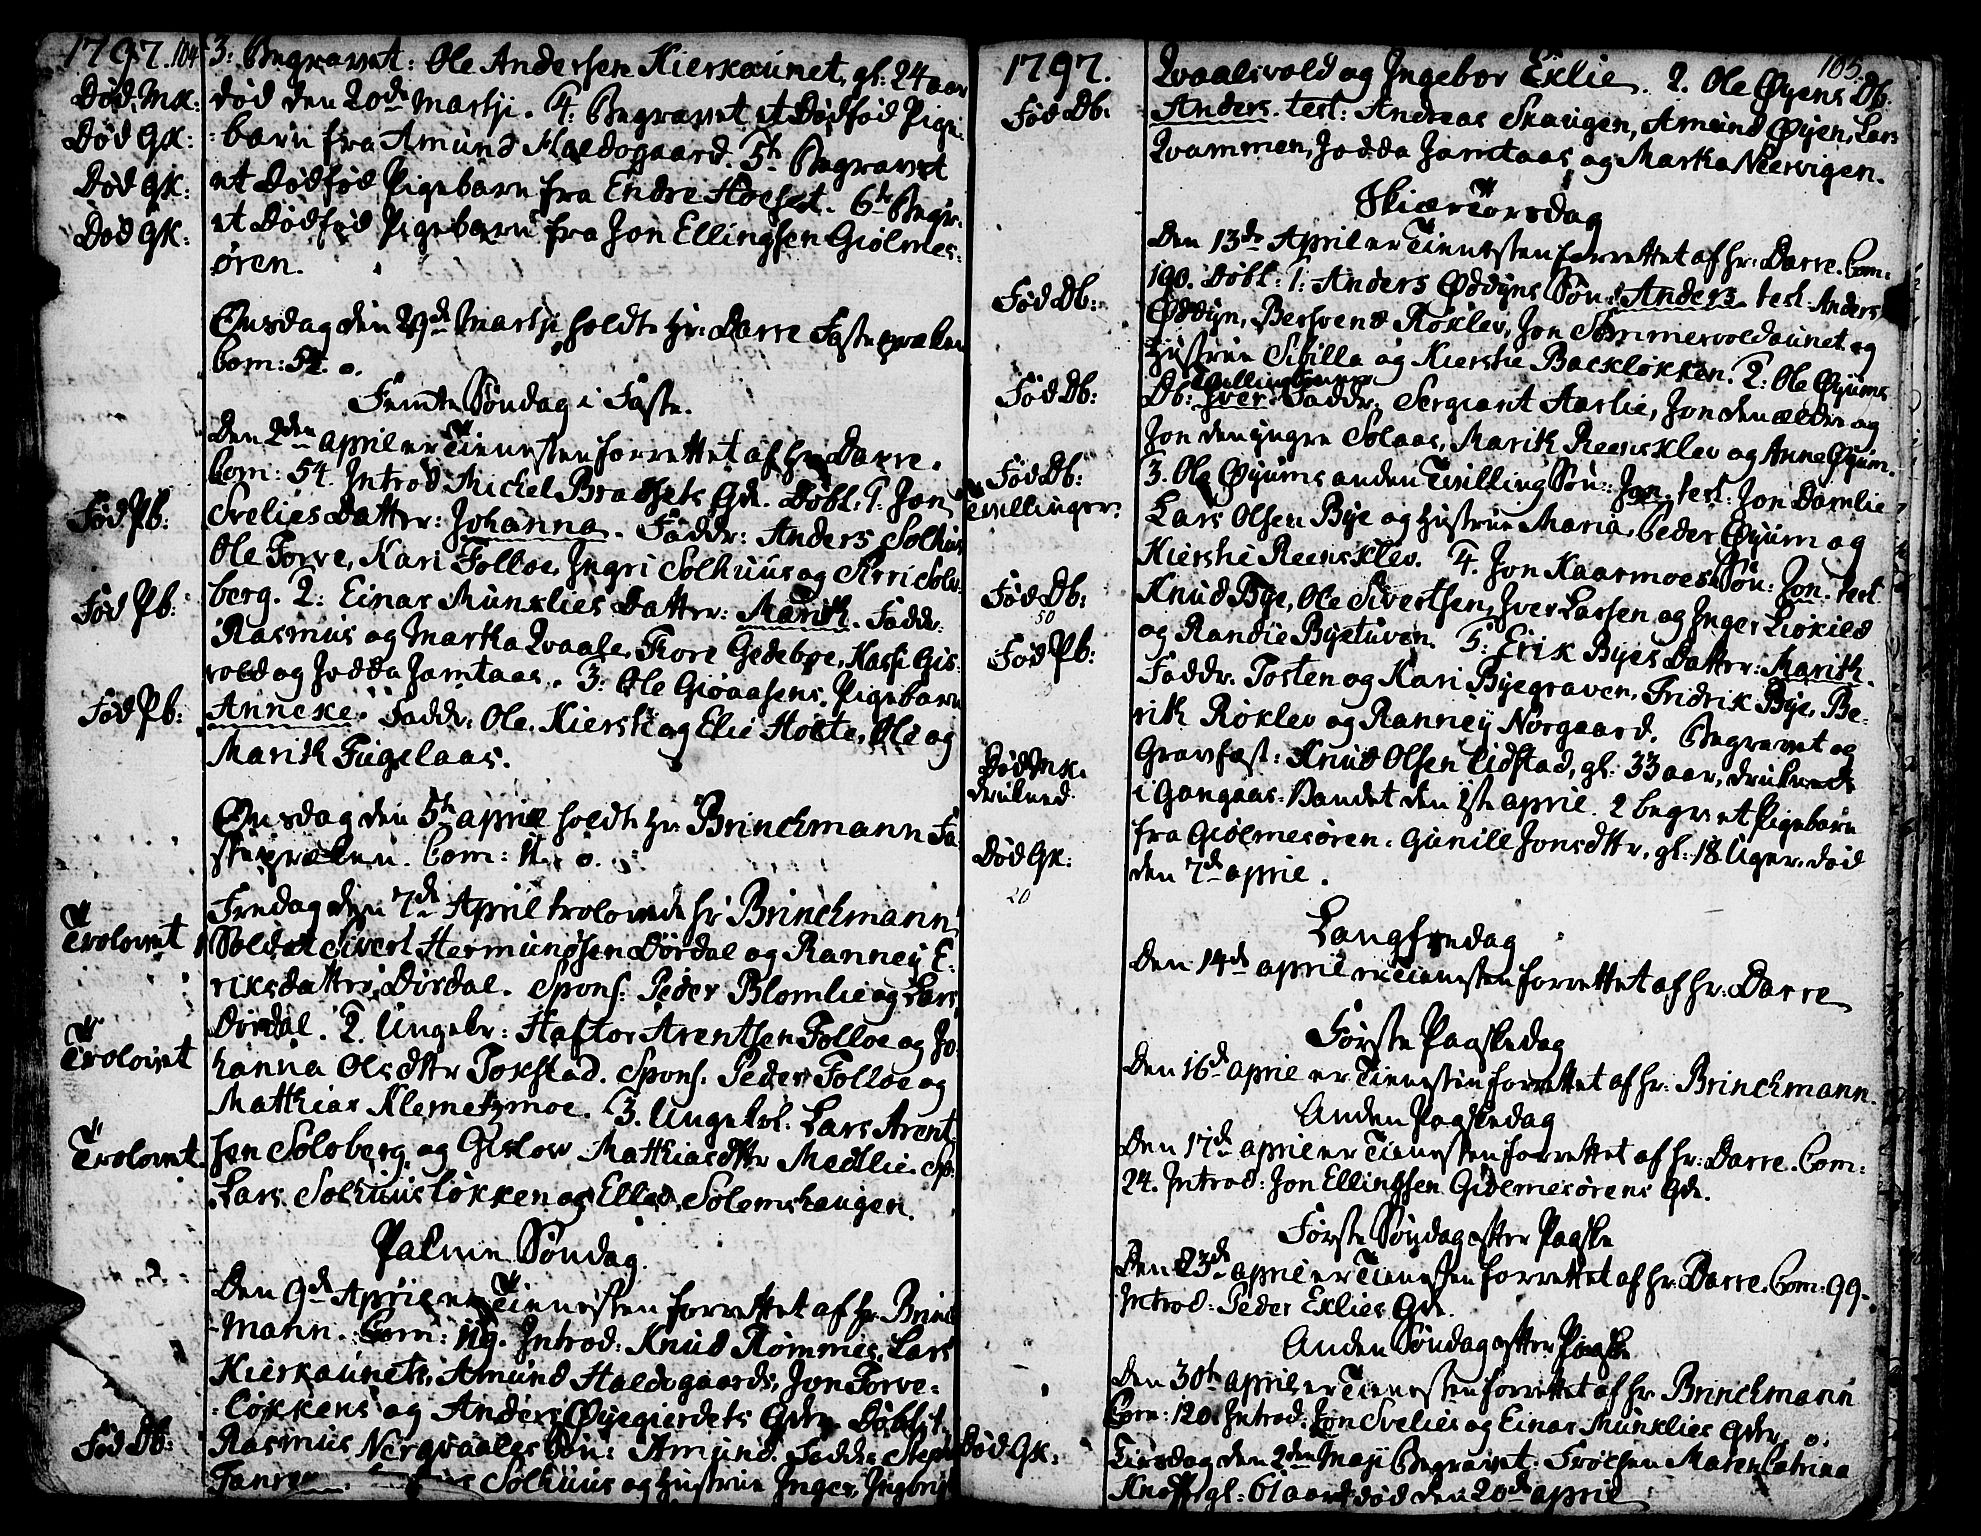 1797. 104
Død Mk:
Død Gk:
Død Gk:
Død Gk:
3: Begravet: Ole Andersen Kierkaunet, gl: 24 aar
død den 20de Martji. 4: Begravet et Dødfød Pige:
barn fra Amund Haldogaard. 5te Begravet
et Dødfød Pigebarn fra Endre Hoeset. 6te Begr.
et Dødfød Pigebarn fra Jon Ellingsen Giølmes:
øren.
Onsdag den 29de Martji holdt Hr: Darre Fastepræken
Com: 54. o.
Femte Søndag i Faste.
Den 2den April er Tienesten forrettet af Hr. Darre.
Com: 54. Introd Mickel Bradsets Qde. Døbt. 1: Jon
Fød Pb:
Svelies Datter: Johanna. Faddr: Anders Solhus
Ole Torve, Kari Folloe, Ingri Solhuus og Siri Solo
Fød Pb:
berg. 2: Einar Munklies Datter: Marith. Faddr:
Rasmus og Marta Qvaale, Tore Gedeboe, Kari Gis:
vold og Jodda Jamtaas. 3: Ole Gioaasens Pigebarn
Fød Pb:
Anneke. Faddr: Ole, Kiersti og Elie Hoete, Ole og
Marith Fugelaas.
Onsdag den 5te april holdt Hr Brinchmann Fa
stepræken. Com: 11. o.
Fredag den 7de April trolovede Hr Brinchmann
Trolovet
Soldat Sivert Hermundsen Dørdal og Ranney E:
riksdatter Dørdal. Spons: Peder Blomlie og Lars
Dørdal. 2. Ungekr: Haftor Arentsen Folloe og Jo
Trolovet
hanna Olsdttr Tokstad. Spons. Peder Folloe og
Mathias Klemetzmoe. 3. Ungekrl. Lars Arent
Trolovet
sen Soloberg og Gislow Mathiasdttr Medlie. Sp:
Lars Solhuusløkken og Ellef Solemshaugen.
Palme Søndag.
Den 9de April er Tienesten forrettet af Hr Brinch
mann. Com: 119. Introd: Knud Rømmes, Lars
Kierkaunets, Amund Haldogaards, Jon Torve:
løkkens og Anders Øyegierdets Qder. Døbt 1.
Fød Db:
Rasmus Nergvaales Søn: Amund. Faddr:
Solhuus og Hustrue Inger,
1797.
105.
Fød Db:
Qvaalsvold og Ingebor Eklie. 2. Ole Øyens Db:
Anders. test: Andreas Skaugen, Amund Øyen, Lars
Qvammen, Jodda Jamtaas og Marta Neervigen.
Skiærtorsdag
Den 13de April er Tienesten forrettet af Hr: Darre. Com:
Fød Db:
190. Døbt: 1: Anders Øddyns Søn: Anders. test: Anders
Øddyn, Berhvend Røklev, Jon Sommervoldaunet og
Hustrue Sibilla og Kiersti Backløkken. 2: Ole Øyums
Fød Db:
Db: Tvilling Iver. Faddr: Sergiant Aarlie, Jon den ældre og
Jon den yngre Solaas, Marith Reensklev og Anne Øyum.
Fød Db:
Tvillinger.
3. Ole Øyums anden Tvilling Søn: Jon. test: Jon Damlie
Lars Olsen Bye og Hustrue Maria, Peder Øyum og
Kiersti Reensklev. 4. Jon Kaarmoes Søn: Jon. test
Fød Db:
50
Knud Bye, Ole Sivertsen, Iver Larsen og Inger Liøkild
og Randie Byestuven. 5. Erik Byes Datter: Marith.
Fød Pb:
Faddr. Tosten og Kari Byegraven, Fridrik Bye, Be:
rith Røklev og Ranney Norgaard. Begravet og
Død Mk.
drukned
Gravfæst: Knud Olsen Lidstad, gl: 33 aar, druknede
i Gangaas-Vandet den 1ste april. 2 begravet Pigebarn
Død Gk:
20
fra Giølmesøren. Gunild Jonsdttr, gl: 18 Uger. død
den 7de april.
Langfredag
Den 14de april er Tienesten forrettet af Hr: Darre
Første Paaskedag
Den 16de april er Tienesten forrettet af Hr: Brinchmann.
Anden Paaskedag
Den 17de april er Tienesten forrettet af Hr: Darre. Com:
24. Introd: Jon Ellingsen Giølmesørens Qde.
Første Søndag efter Paaske
Den 23de april er Tienesten forrettet af Hr: Darre. Com: 99.
Introd: Peder Eklies Qde.
Anden Søndag efter Paaske
Den 30te april er Tienesten forrettet af Hr: Brinchmann
Com: 120. Introd: Jon Svelies og Einar Munklies Qder. o.
Død Gk:
Tirsdag den 2den Maji Begravet: Frøchen Maren Catrina
Knoff gl: 61 aar død den 20de april